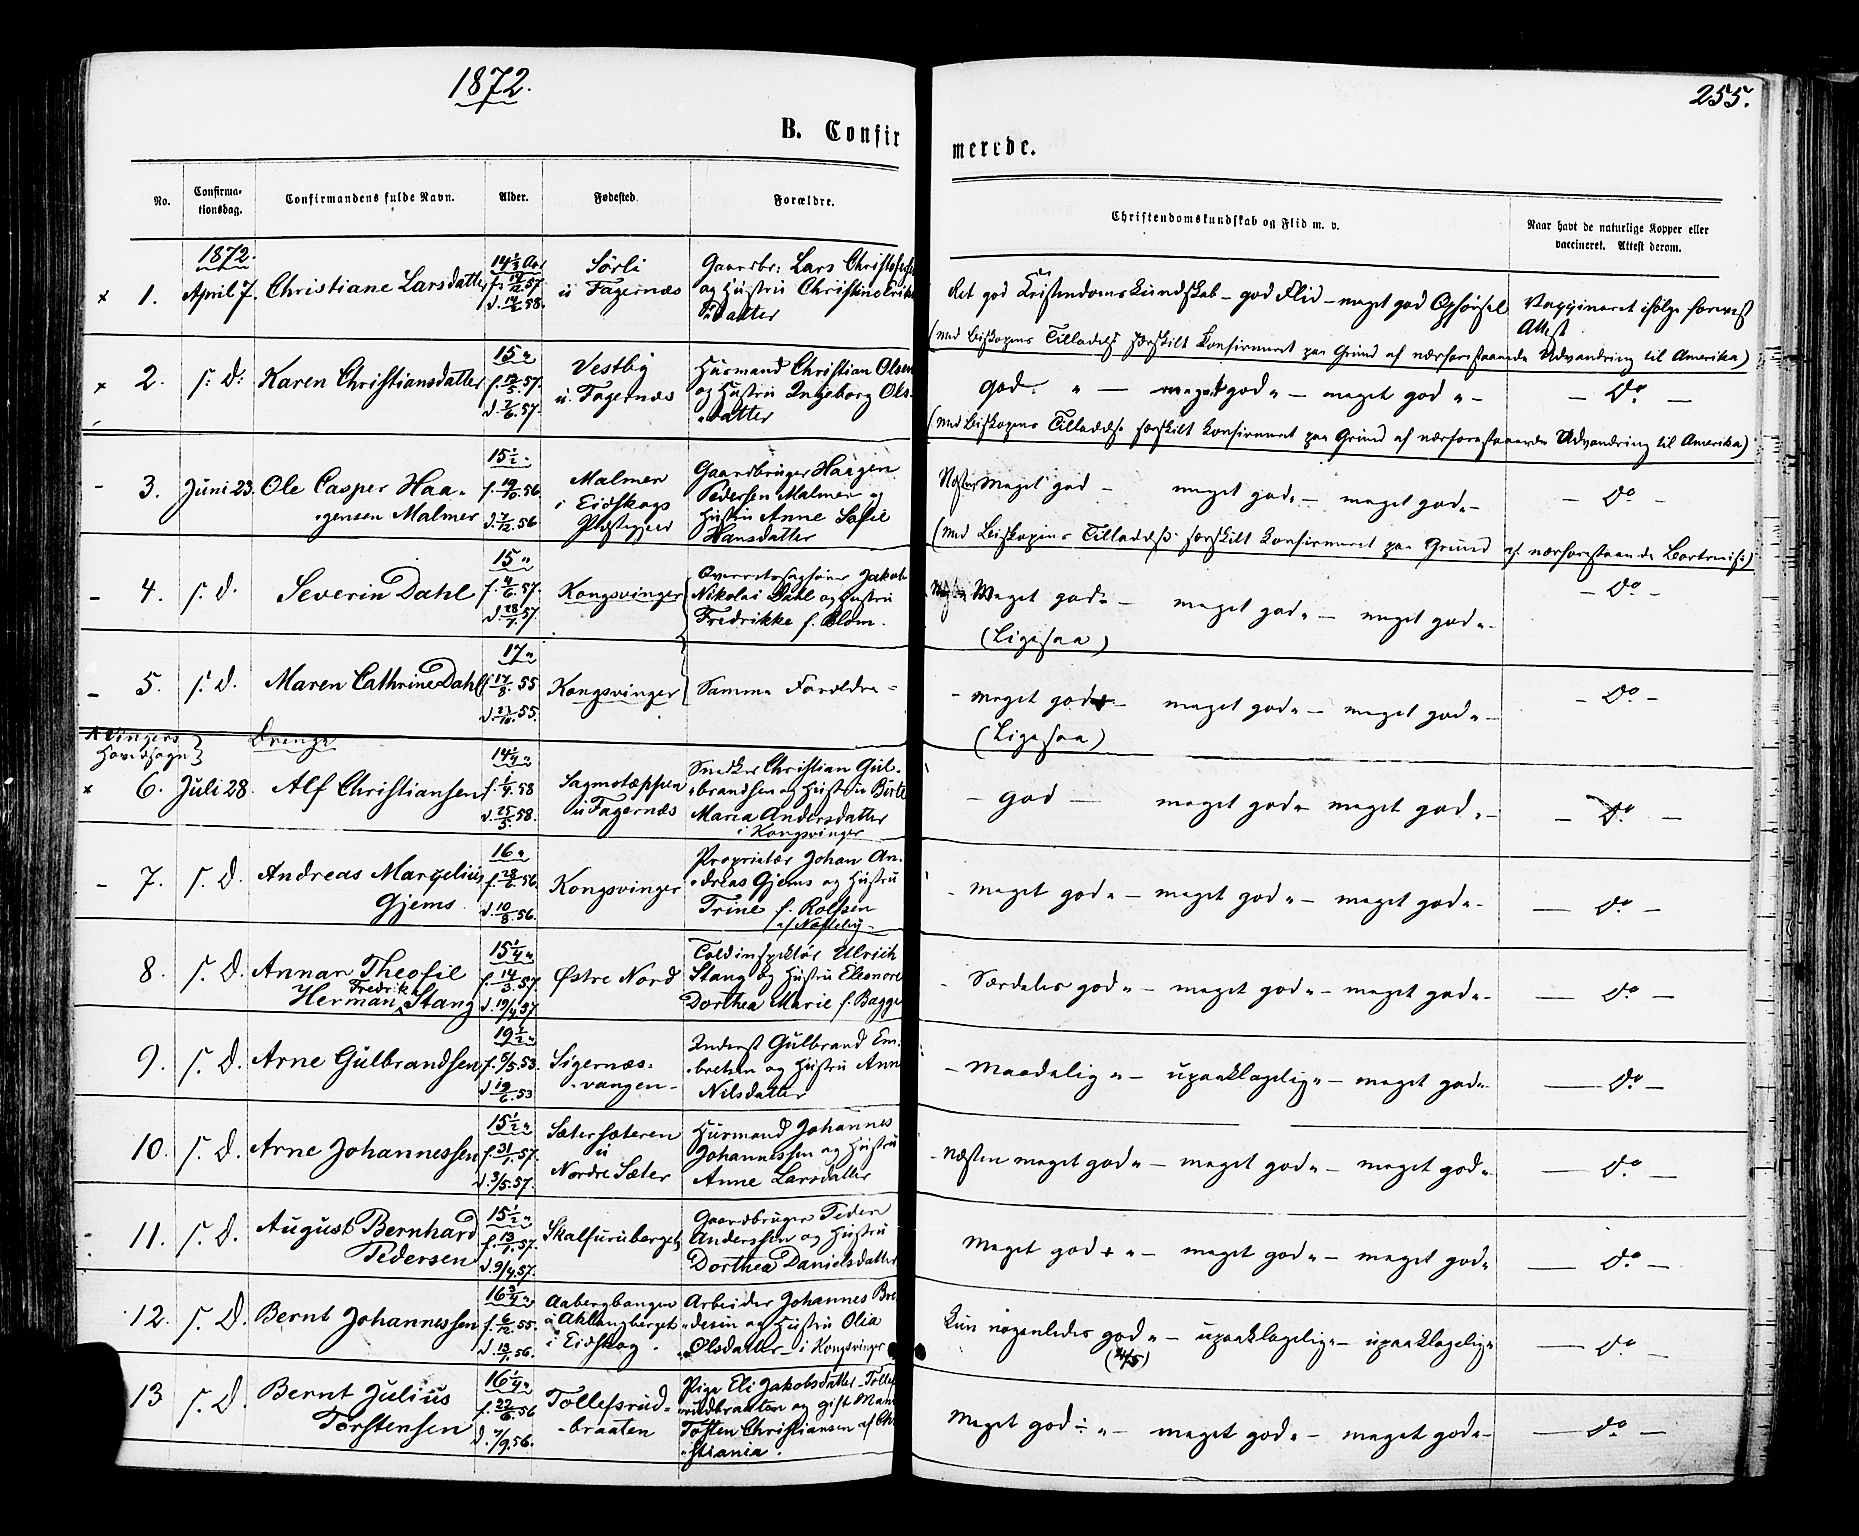 1872.
255.
B. Confirmerede.
No.
Confirma-
tionsdag.
Confirmandens fulde Navn.
Alder.
Fødested.
Forældre.
Christendomskundskab og Flid m. v.
Naar havt de naturlige Kopper eller
vaccineret. Attest derom.
1872.
× 1. April 7. Christiane Larsdatter
f. 19/12 57
Sörli
u Fagernæs
Gaardbr: Lars Christofersen
og Hustru Christine Eriks
datter
Ret god Kristendomskundskab - god Flid - meget god Opførsel
Vaccineret ifølge forevist
Attest
(med Biskopens Tilladelse særskilt konfirmeret paa Grund af nærforestaaende Udvandring til Amerika)
× 2. s: D: Karen Christiansdatter
15 "
f. 19/5 57.
d. 7/6 57.
Vestby
u. Fagernæs
Husmand Christian Olsen
og Hustru Ingeborg Ols-
datter
god " - meget god " - meget god " -
- Do -
(med Biskopens Tilladelse særskilt konfirmeret paa Grund af nærforestaaende Udvandring til Amerika)
- 3. Juni 23. Ole Casper Haa-
gensen Malmer
15 1/2 "
f. 19/10 56
d. 7/12 56
Malmer
i Eidskogs
Præstegjeld
Gaardbruger Haagen
Pedersen Malmer og
Hustru Anne Sofie
Hansdatter
Næsten Meget god - meget god " - meget god " -
- Do -
(med Biskopens Tilladelse særskilt konfirmeret paa Grund af nærforestaaende Bortreise)
- 4. s. D. Severin Dahl
15 "
f. 4/6 57.
d. 28/7 57
Kongsvinger
Overretssagfører Jakob
Nikolai Dahl og Hustru
Fredrikke f. Blom.
Meget god " - meget god " - meget god " -
(Ligesaa)
- Do -
- 5. s. D. Maren Cathrine Dahl
17 "
f. 17/8 55
d. 21/10 55.
Kongsvinger
Samme Forældre -
- meget god - meget god " - meget god " -
(Ligesaa)
- Do -
Vingers
Hovedsogn
Drenge
× 6. Juli 28. Alf Christiansen
14 1/4 "
f. 1/4 58
d. 25/5 58.
Sagmotæppen
u Fagernæs
Snedker Christian Gul-
brandsen og Hustru Birte
Maria Andersdatter
i Kongsvinger
- god - meget god " - meget god " -
- Do -
- 7. s. D. Andreas Marselius
Gjems.
16 "
f. 28/6 56.
d. 10/8 56.
Kongsvinger
Proprietær Johan An-
dreas Gjems og Hustru
Trine f. Rolfsen
- Meget god " - meget god " - meget god " -
- Do -
8. s. D. Annar Theofil
Fredrik
Herman Stang
15 1/4 "
f. 14/3 57.
d. 19/4 57
Østre Nord
Toldinspektör Ulrich
Stang og Hustru Eleonore
Dorthea Marie f. Bagge
- Særdeles god " - meget god " - meget god " -
- Do -
9. s. D. Arne Gulbrandsen
f. 5/5 53.
d. 19/6 53
Sigernæs-
vangen -
Inderst Gulbrand Em-
bretsen og Hustru Anne
Nilsdatter
- Maadelig " - upaaklagelig " - meget god "
- Do -
10. s. D. Arne Johannessen
15 1/2 "
f. 31/1 57.
d. 3/5 57.
Sætersæteren
u
Nordre Sæter
Husmand Johannes
Johannessen og Hustru
Anne Larsdatter
- Næsten meget god " - meget god " - meget god "
- Do -
11. s. D. August Bernhard
Pedersen
15 1/2 "
f. 13/1 57.
d. 9/4 57.
Skalfuruberget
Gaardbruger Peder
Anderssen og Hustru
Dorthea Danielsdatter
Meget god + " - meget god " - meget god "
- Do -
12. s. D. Bernt Johannessen
16 3/4 "
f. 6/12 55.
d. 13/1 56.
Aabergbangen
u Aklangberget
i Eidskog.
Arbeider Johannes Bre-
desen og Hustru Olia
Olsdatter - i Kongsvinger
Kun nogenledes god " - upaaklagelig " - upaaklagelig "
- Do -
13 s. D. Bernt Julius
Torstensen
16 1/4 "
f. 22/6 56
d. 7/9 56.
Tollefsrud-
-braaten
Pige Eli Jakobsdatter Tollefs
rudbraaten og gift Mand
Tosten Christiansen af Chri
stiania.
Meget god ÷ " - meget god " - meget god " -
- Do -